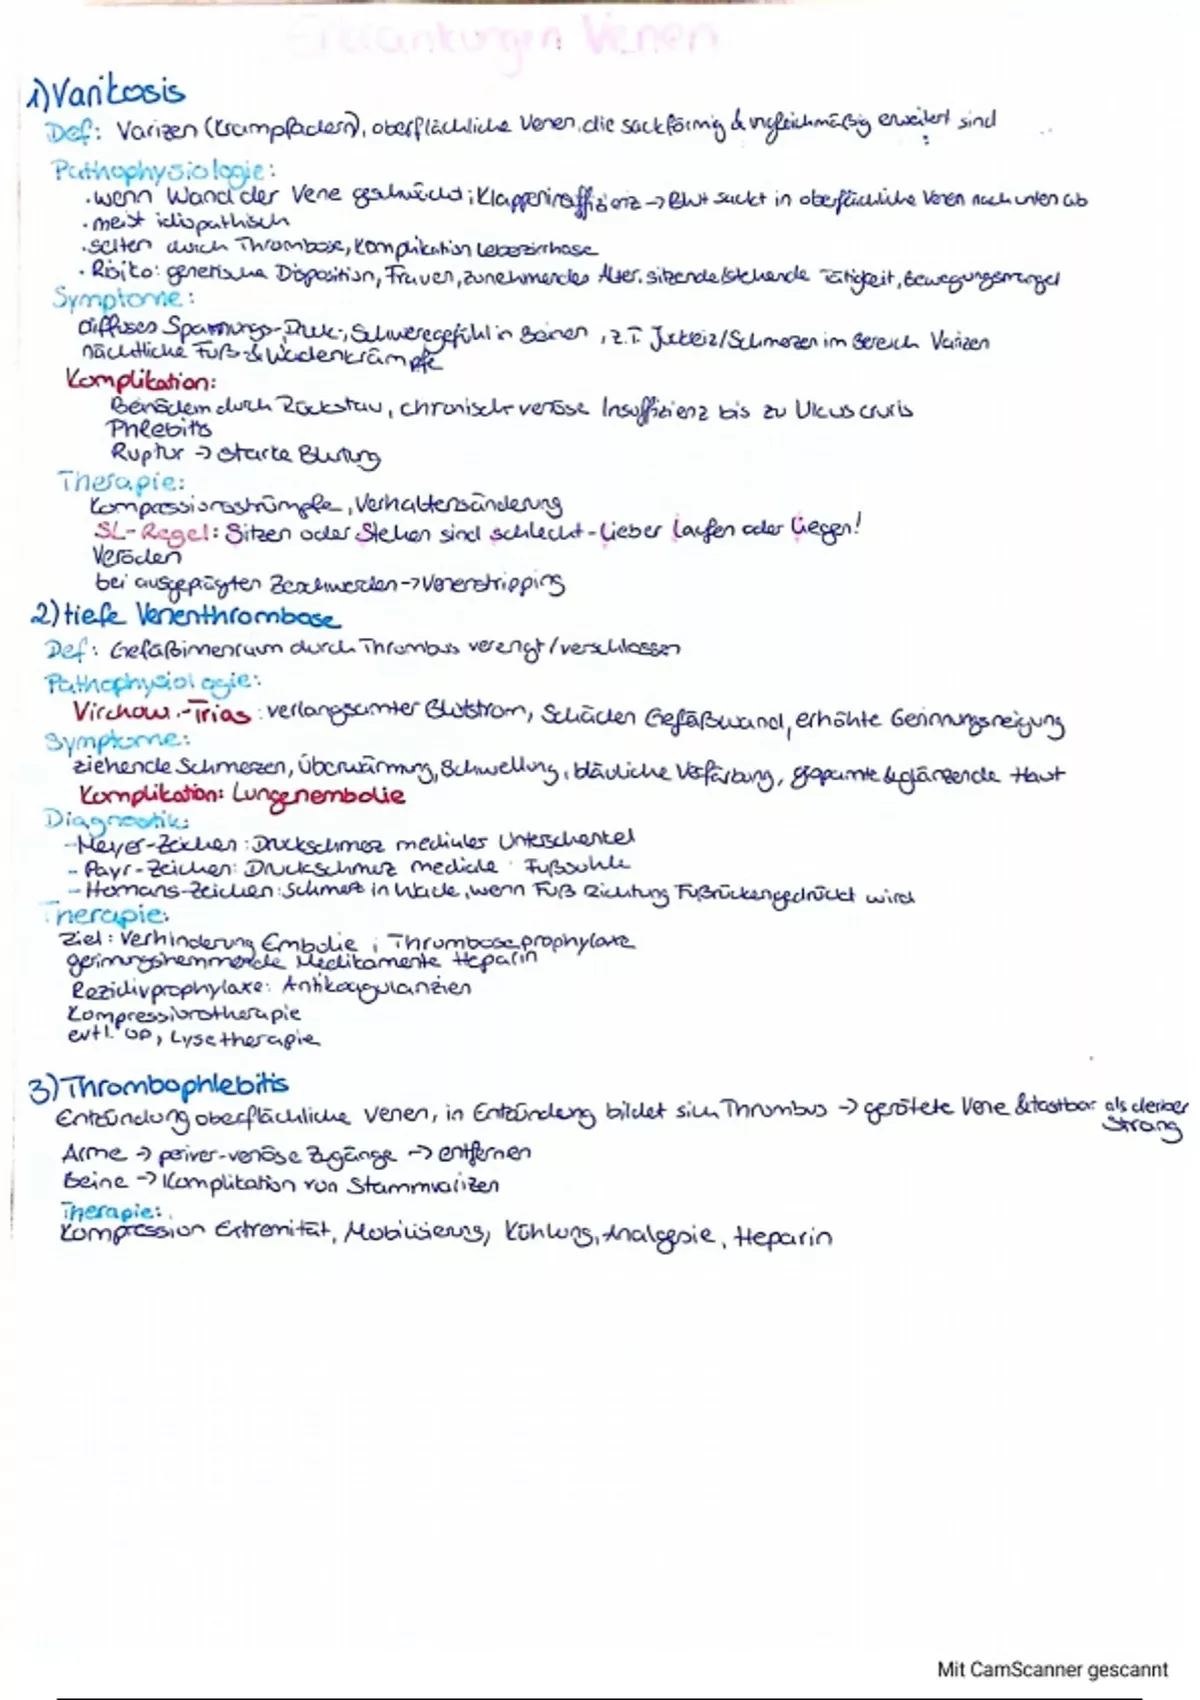 Erkrankungen Venen
1) Varikosis
Def: Varizen (Krampfadern), oberflächliche Venen, die sackförmig & ungleichmäßig erweitert sind
Pathophysiologie:
· wenn Wand der Vene geschwächt; Klappeninsuffizienz → Blut sackt in oberflächliche Venen nach unten ab
· meist idiopathisch
· selten durch Thrombose, Komplikation Leberzirrhose
· Risiko: genetische Disposition, Frauen, zunehmendes Alter, sitzende/stehende Tätigkeit, Bewegungsmangel
Symptome:
diffuses Spannungs-, Druck-, Schweregefühl in Beinen, z.T. Juckreiz/Schmerzen im Bereich Varizen
nächtliche Fuß- & Wadenkrämpfe
Komplikation:
Beinödem durch Rückstau, chronisch venöse Insuffizienz bis zu Ulcus cruris
Phlebitis
Ruptur → starke Blutung
Therapie:
Kompressionsstrümpfe, Verhaltensänderung
SL-Regel: Sitzen oder Stehen sind schlecht - Lieber laufen oder liegen!
Veröden
bei ausgeprägten Beschwerden → Venenstripping
2) tiefe Venenthrombose
Def: Gefäßinnenraum durch Thrombus verengt/verschlossen
Pathophysiologie:
Virchow-Trias: verlangsamter Blutstrom, Schäden Gefäßwand, erhöhte Gerinnungsneigung
Symptome:
ziehende Schmerzen, Überwärmung, Schwellung, bläuliche Verfärbung, gespannte & glänzende Haut
Komplikation: Lungenembolie
Diagnostik:
- Meyer-Zeichen: Druckschmerz medialer Unterschenkel
- Payr-Zeichen: Druckschmerz mediale Fußsohle
- Homans-Zeichen: Schmerz in Wade, wenn Fuß Richtung Fußrücken gedrückt wird
Therapie:
Ziel: Verhinderung Embolie; Thromboseprophylaxe
gerinnungshemmende Medikamente Heparin
Rezidivprophylaxe: Antikoagulanzien
Kompressionstherapie
evtl. OP, Lysetherapie
3) Thrombophlebitis
Entzündung oberflächliche Venen, in Entzündung bildet sich Thrombus → gerötete Vene & tastbar als derber
Strang
Arme → periver-venöse Zugänge → entfernen
Beine → Komplikation von Stammvarizen
Therapie:
Kompression Extremität, Mobilisierung, Kühlung, Analgesie, Heparin
Mit CamScanner gescannt